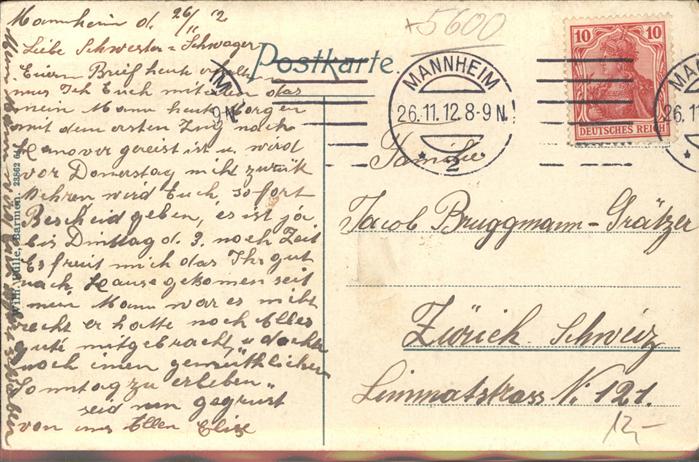 Mannheim d. 26/11 12
Liebe Schwester = Schwager
Euern Brief heute erhalten
mus Ich Euch mitteilen das
mein Mann heute Morgen
mit dem ersten Zug nach
Hanover gereist ist u. wird
vor Donerstag nicht zurük
kehren wird Euch sofort
Bescheid geben, es ist ja
bis Dinstag d. 3. noch Zeit
Es freut mich das Ihr gut
nach Hause gekomen seit
mein Mann war es nicht
recht er hatte noch Elles
gute mitgebracht, u dachte
noch einen gemüthlichen
Sonntag zu erleben"
seid nun gegrüst
von uns Allen Elise
Wilh. Fülle, Barmen. 23562
Postkarte.
+5600
MANNHEIM
26.11.12.8-9N.
* 2
10 10
DEUTSCHES REICH
MANNHEIM
26.1
9N.
Familie
Jacob Bruggmann-Grätzer
Zürich Schweiz
Limmatstrass N. 121.
12,-